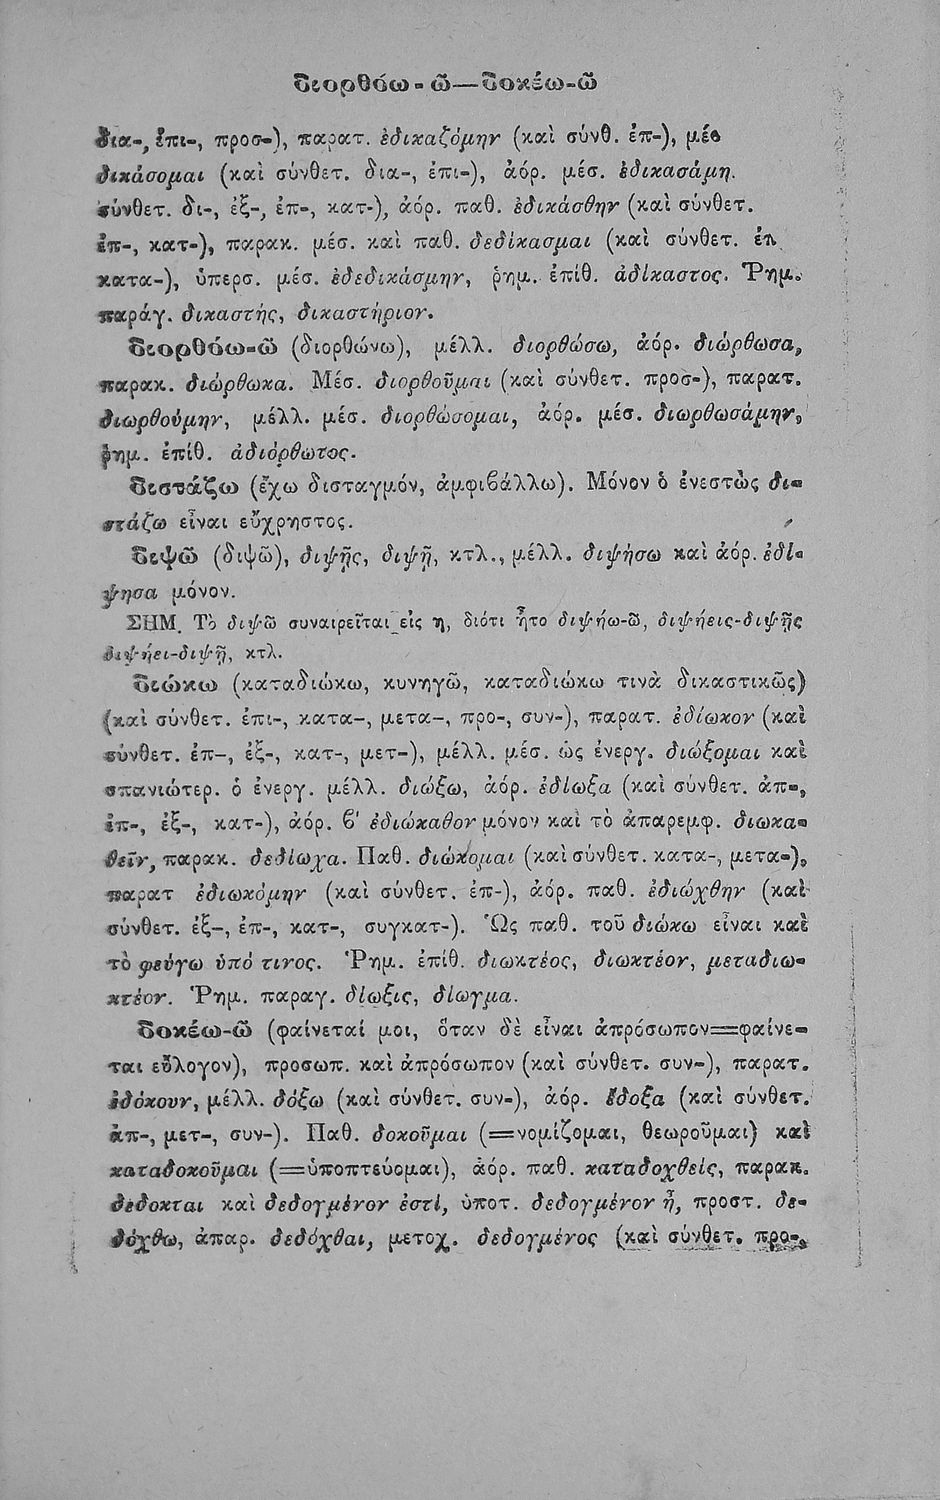 διορθόω-ῶ—δοκέω-ῶ
δια-, ἐπι-, προσ-), παρατ. ἐδικαζόμην (καὶ σύνθ. ἐπ-), μέσ
δικάσομαι (καὶ σύνθετ. δια-, ἐπι-), ἀόρ. μέσ. ἐδικασάμη.
σύνθετ. δι-, ἐξ-, ἐπ-, κατ-), ἀόρ. παθ. ἐδικάσθην (καὶ σύνθετ.
ἐπ-, κατ-), παρακ. μέσ. καὶ παθ. δεδίκασμαι (καὶ σύνθετ. ἐπ
κατα-), ὑπερσ. μέσ. ἐδεδικάσμην, ῥημ. ἐπίθ. ἀδίκαστος. Ῥημ.
παράγ. δικαστής, δικαστήριον.
διορθόω-ῶ (διορθώνω), μέλλ. διορθώσω, ἀόρ. διώρθωσα,
παρακ. διώρθωκα. Μέσ. διορθοῦμαι (καὶ σύνθετ. προσ-), παρατ.
διωρθούμην, μέλλ. μέσ. διορθώσομαι, ἀόρ. μέσ. διωρθωσάμην,
ῥημ. ἐπίθ. ἀδιόρθωτος.
διστάζω (ἔχω δισταγμόν, ἀμφιβάλλω). Μόνον ὁ ἐνεστὼς δι-
στάζω εἶναι εὔχρηστος.
διψῶ (διψῶ), διψῇς, διψῇ, κτλ., μέλλ. διψήσω καὶ ἀόρ. ἐδί-
ψησα μόνον.
ΣΗΜ. Τὸ διψῶ συναιρεῖται εἰς η, διότι ἦτο διψήω-ῶ, διψήεις-διψῇς
διψήει-διψῇ, κτλ.
διώκω (καταδιώκω, κυνηγῶ, καταδιώκω τινὰ δικαστικῶς)
(καὶ σύνθετ. ἐπι-, κατα-, μετα-, προ-, συν-), παρατ. ἐδίωκον (καὶ
σύνθετ. ἐπ-, ἐξ-, κατ-, μετ-), μέλλ. μέσ. ὡς ἐνεργ. διώξομαι καὶ
σπανιώτερ. ὁ ἐνεργ. μέλλ. διώξω, ἀόρ. ἐδίωξα (καὶ σύνθετ. ἀπ-,
ἐπ-, ἐξ-, κατ-), ἀόρ. β' ἐδιώκαθον μόνον καὶ τὸ ἀπαρεμφ. διωκα-
θεῖν, παρακ. δεδίωχα. Παθ. διώκομαι (καὶ σύνθετ. κατα-, μετα-),
παρατ ἐδιωκόμην (καὶ σύνθετ. ἐπ-), ἀόρ. παθ. ἐδιώχθην (καὶ
σύνθετ. ἐξ-, ἐπ-, κατ-, συγκατ-). Ὡς παθ. τοῦ διώκω εἶναι καὶ
τὸ φεύγω ὑπό τινος. Ῥημ. ἐπίθ. διωκτέος, διωκτέον, μεταδιω-
κτέον. Ῥημ. παραγ. δίωξις, δίωγμα.
δοκέω-ῶ (φαίνεταί μοι, ὅταν δὲ εἶναι ἀπρόσωπον=φαίνε-
ται εὔλογον), προσωπ. καὶ ἀπρόσωπον (καὶ σύνθετ. συν-), παρατ.
ἐδόκουν, μέλλ. δόξω (καὶ σύνθετ. συν-), ἀόρ. ἔδοξα (καὶ σύνθετ.
ἀπ-, μετ-, συν-). Παθ. δοκοῦμαι (=νομίζομαι, θεωροῦμαι) καὶ
καταδοκοῦμαι (=ὑποπτεύομαι), ἀόρ. παθ. καταδοχθείς, παρακ.
δέδοκται καὶ δεδογμένον ἐστί, ὑποτ. δεδογμένον ᾖ, προστ. δε-
δόχθω, ἀπαρ. δεδόχθαι, μετοχ. δεδογμένος (καὶ σύνθετ. προ-,